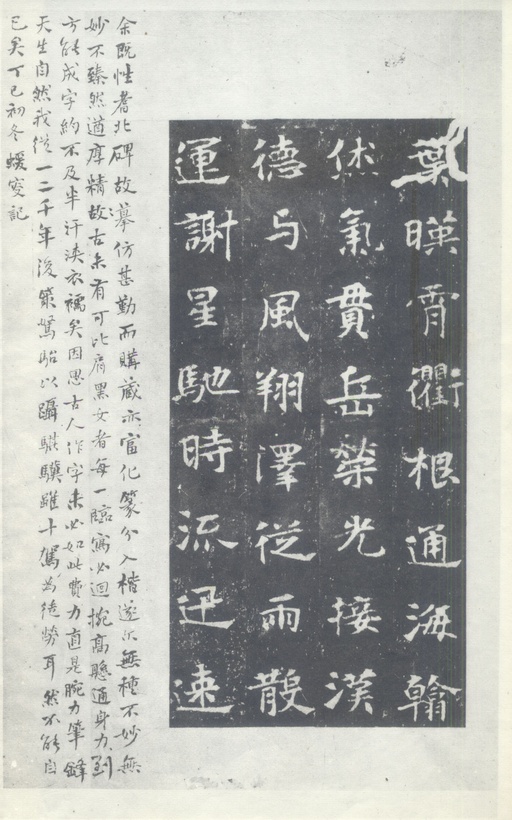 葉暎霄衢根通海翰
休氣貫岳榮光接漢
德与風翔澤從雨散
運謝星馳時流迅速
余既性耆北碑故摹仿甚勤而購藏亦富化篆分入楷遂尓無種不妙無
妙不臻然遒厚精故古未有可比肩黑女者每一臨寫必迴捥高懸通身力到
方能成字約不及半汗浹衣襦矣因思古人作字未必如此費力直是腕力筆鋒
天生自然我從一二千年後策駑駘以躡騏驥雖十駕爲徒勞耳然不能自
已矣丁巳初冬蝯叟記